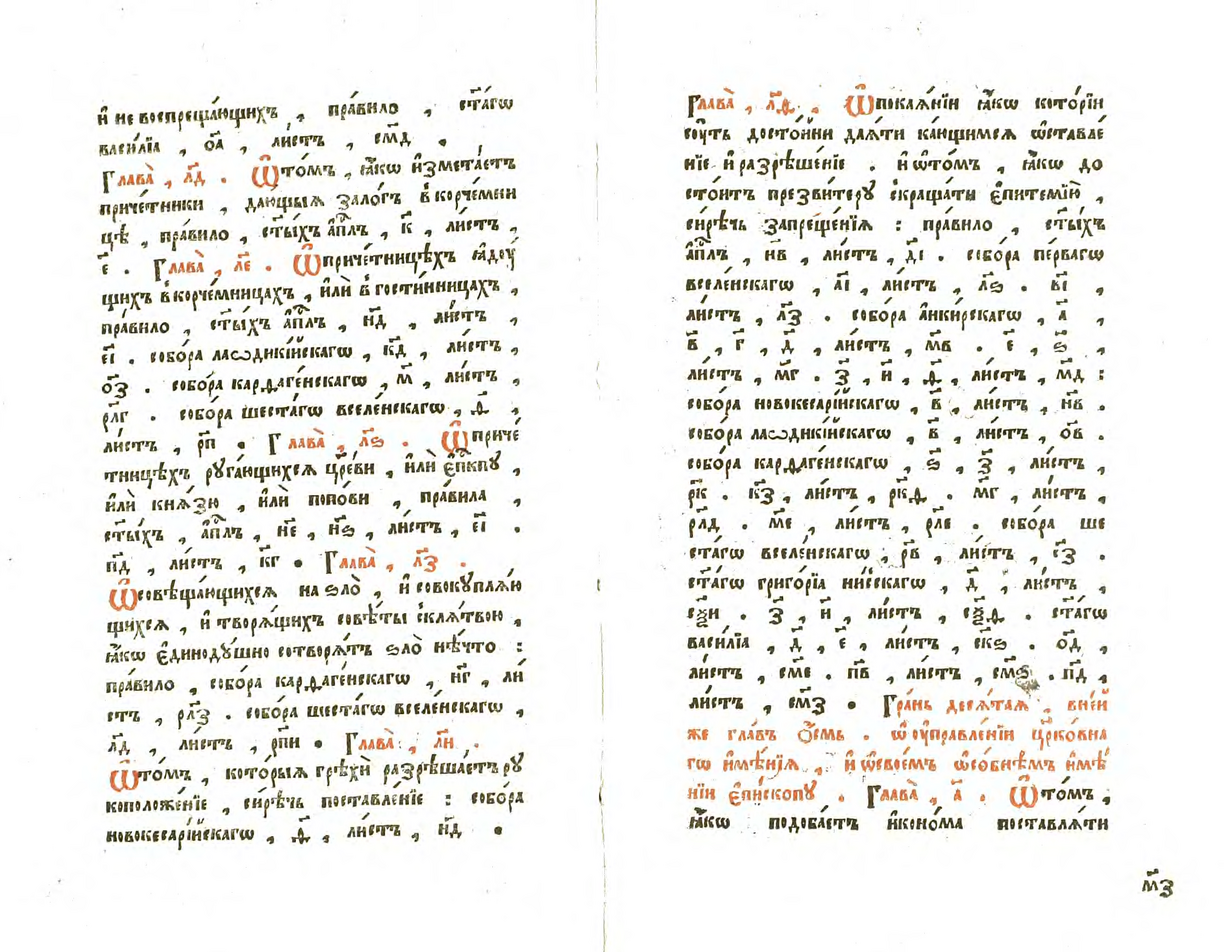 и҆ не воспреща́ющихъ , пра́вило , ст҃а́гѡ
васи́лїа , о҃а , ли́стъ , см҃д .
Глава̀ , л҃д . Ѡ҆то́мъ , ꙗ҆́кѡ и҆змета́етъ
приче́тники , даю́щыѧ зало́гъ в̾корче́мни
цѣ , пра́вило , ст҃ы́хъ а҆п҃лъ , к҃ , ли́стъ ,
є҃ . Глава̀ , л҃є . Ѡ҆приче́тницѣхъ ꙗ҆дꙋ́
щихъ в̾корче́мницахъ , и҆лѝ в̾гости́нницахъ ,
пра́вило , ст҃ы́хъ а҆п҃лъ , н҃д , ли́стъ ,
є҃і . собо́ра лаѡдикі́йскагѡ , к҃д , ли́стъ ,
о҃з . собо́ра карѳаге́нскагѡ , м҃ , ли́стъ ,
рл҃г . собо́ра шеста́гѡ вселе́нскагѡ , ѳ҃ ,
ли́стъ , р҃п . Глава̀ , л҃ѕ . Ѡ҆приче́
тницѣхъ рꙋга́ющихсѧ цр҃е́ви , и҆лѝ є҆пк҃пꙋ ,
и҆лѝ кнѧ́зю , и҆лѝ попо́ви , пра́вила ,
ст҃ы́хъ , а҆п҃лъ , н҃є , н҃ѕ , ли́стъ , є҃і .
п҃д , ли́стъ , к҃г . Глава̀ , л҃з .
Ѡ҆совѣща́ющихсѧ на ѕло̀ , и҆ совокꙋплѧ́ю
щихсѧ , и҆ творѧ́щихъ совѣ́ты с̾клѧ́твою ,
ꙗ҆́кѡ є҆динодꙋ́шно сотворѧ́тъ ѕло̀ нѣ́что :
пра́вило , собо́ра карѳаге́нскагѡ , н҃г , ли́
стъ , рл҃з . собо́ра шеста́гѡ вселе́нскагѡ ,
л҃д , ли́стъ , рп҃и . Глава̀ , л҃и .
Ѡ҆то́мъ , кото́рыѧ грѣхѝ разрѣша́етъ рꙋ
коположе́нїе , си́рѣчь поставле́нїе : собо́ра
новокесарі́йскагѡ , ѳ҃ , ли́стъ , н҃д .
Глава̀ , л҃ѳ . Ѡ҆покаѧ́нїи ꙗ҆́кѡ кото́рїи
сꙋ́ть досто́йни даѧ́ти ка́ющимсѧ ѡ҆ставле́
нїе и҆ разрѣше́нїе . и҆ ѡ҆то́мъ , ꙗ҆́кѡ до
сто́итъ презви́терꙋ с̾краща́ти є҆питемі́ю ,
си́рѣчь запреще́нїѧ : пра́вило , ст҃ы́хъ
а҆п҃лъ , н҃в , ли́стъ , д҃і . собо́ра пе́рвагѡ
вселе́нскагѡ , а҃і , ли́стъ , л҃ѕ . в҃і ,
ли́стъ , л҃з . собо́ра а҆нки́рскагѡ , а҃ ,
в҃ , г҃ , д҃ , ли́стъ , м҃в . є҃ , ѕ҃ ,
ли́стъ , м҃г . з҃ , и҃ , ѳ҃ , ли́стъ , м҃д :
собо́ра новокесарі́йскагѡ , в҃ , ли́стъ , н҃в .
собо́ра лаѡдикі́йскагѡ , в҃ , ли́стъ , о҃в .
собо́ра карѳаге́нскагѡ , ѕ҃ , з҃ , ли́стъ ,
р҃к . к҃з , ли́стъ , рк҃ѳ . м҃г , ли́стъ ,
рл҃д . м҃є , ли́стъ , рл҃є . собо́ра ше
ста́гѡ вселе́нскагѡ , р҃в , ли́стъ , с҃з .
ст҃а́гѡ григо́рїа ни́сскагѡ , д҃ , ли́стъ ,
сѯ҃и . з҃ , и҃ , ли́стъ , сѯ҃ѳ . ст҃а́гѡ
васи́лїа , д҃ , є҃ , ли́стъ , ск҃ѕ . о҃д ,
ли́стъ , см҃є . п҃в , ли́стъ , см҃ѕ . п҃д ,
ли́стъ , см҃з . Гра́нь десѧ́таѧ , в̾не́й
же гла́въ Ѻ҆́смь . ѡ҆ ᲂу҆правле́нїи цр҃ко́вна
гѡ и҆мѣ́нїѧ , и҆ ѡ҆свое́мъ ѡ҆со́бнѣмъ и҆мѣ́
нїи є҆пи́скопꙋ . Глава̀ , а҃ . Ѡ҆то́мъ ,
ꙗ҆́кѡ подоба́етъ и҆коно́ма поставлѧ́ти
м҃з